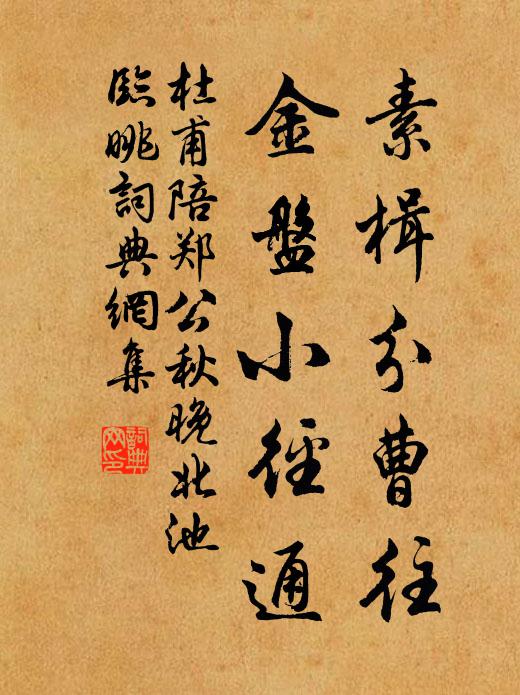 素楫分曹往
金盤小徑通
杜甫陪郑公秋晚北池
臨眺詞典網集
詞典
网印